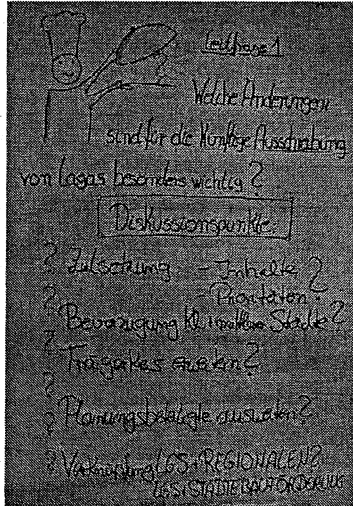 Leitfrage 1
Welche Änderungen
sind für die künftige Ausschreibung
von Lagas besonders wichtig?
Diskussionspunkte:
? Zielsetzung - Inhalte?
? - Prioritäten?
Bevorzugung kl. + mittlere Städte?
? Trägerkreis erweitern?
?
? Planungsbeteiligte ausweiten?
? Verknüpfung LGS + REGIONALEN?
LGS + STÄDTEBAUFÖRDERUNG